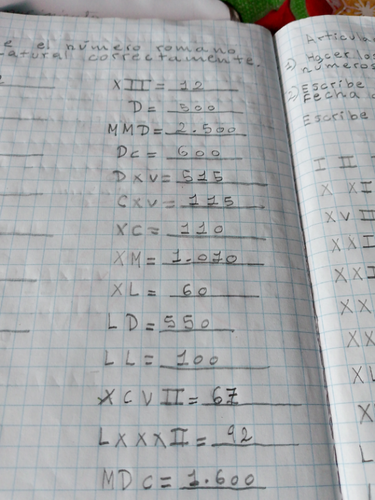 e el número romano
atural correctamente.
XII = 12
D = 500
MMD = 2.500
DC = 600
DXV = 515
CXV = 115
XC = 110
XM = 1.010
XL = 60
LD = 550
LL = 100
XCVII = 67
LXXXII = 92
MDC = 1.600
Articula
Hacer los
números
Escribe
Fecha
Escribe
I II
X XI
XVII
XXI
XXI
XX
XX
XL
X
L